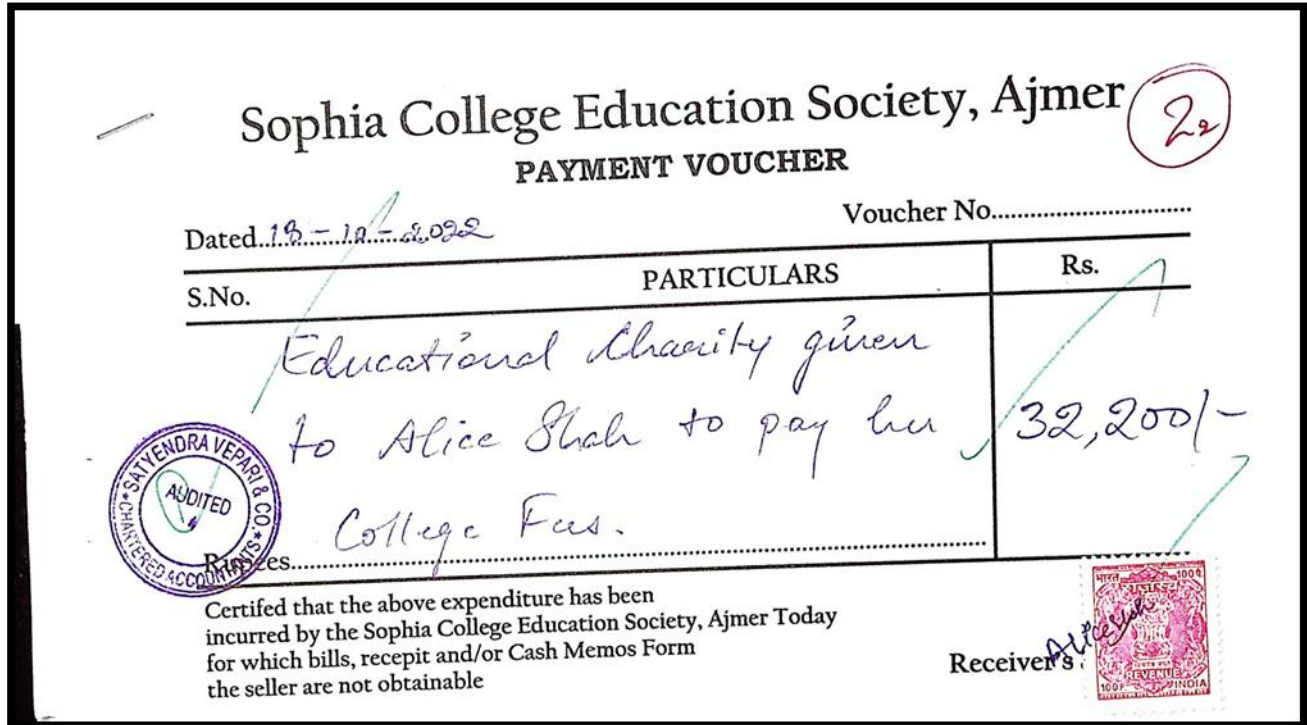 Sophia College Education Society, Ajmer
22
PAYMENT VOUCHER
Dated..18-10-2022
Voucher No..............................
S.No. PARTICULARS Rs.
Educational Charity given
to Alice Shah to pay her 32,200/-
College Fees.
Rupees..............................
SATYENDRA VEPARI & CO.
AUDITED
CHARTERED ACCOUNTANTS
Certifed that the above expenditure has been
incurred by the Sophia College Education Society, Ajmer Today
for which bills, recepit and/or Cash Memos Form
the seller are not obtainable
Receiver's
Alice Shah
भारत 100P
REVENUE
100P INDIA